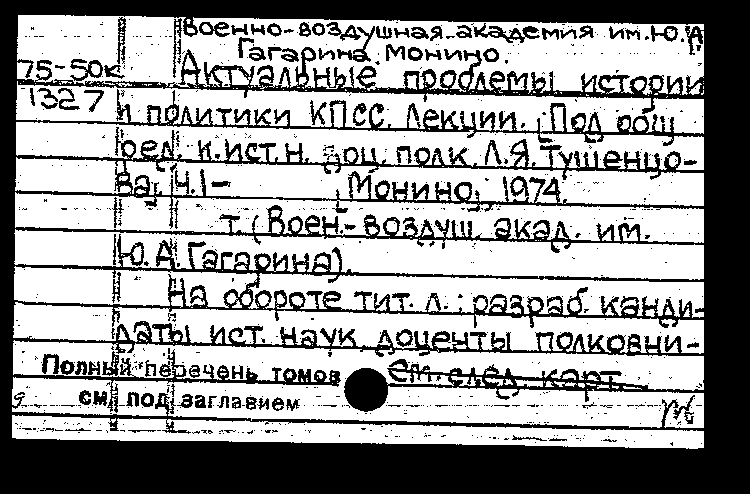 Военно-воздушная академия им. Ю.А.
Гагарина. Монино.
75-50к Актуальные проблемы истории
1327 и политики КПСС. Лекции. [Под общ
ред. к.ист.н. доц. полк. Л.Я. Тушенцо-
ва]. Ч.1- [Монино], 1974.
т. (Воен.-воздуш. акад. им.
Ю.А. Гагарина).
На обороте тит. л.: разраб. канди-
даты ист. наук доценты полковни-
Полный перечень томов см. след. карт.
см. под заглавием
9